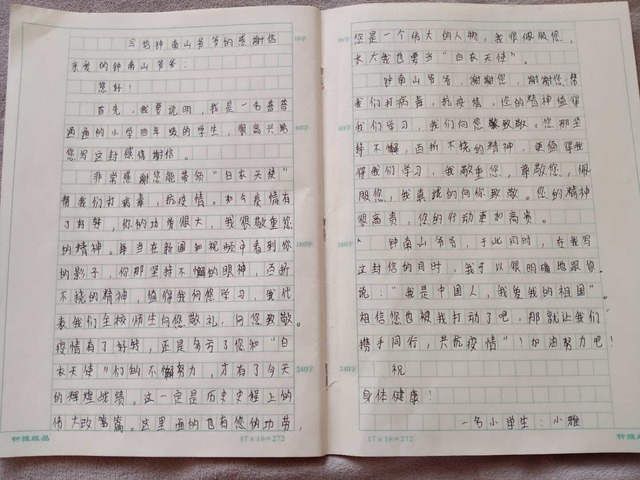 写给钟南山爷爷的感谢信
亲爱的钟南山爷爷:
您好!
首先,我要说明,我是一名普普
通通的小学四年级的学生,很高兴给
您写这封感谢信。
非常感谢您能带领“白衣天使”
帮我们打病毒,抗疫情。如今疫情有
了好转,你的功劳很大,我很敬重您
的精神。每当在新闻和视频中看到您
的影子,你那坚持不懈的眼神,百折
不挠的精神,值得我向您学习,我代
表我们全校师生向您敬礼,向您致敬。
疫情有了好转,还是多亏了您和“白
衣天使”们的不懈努力,才有了今天
的辉煌战绩。这一定是历史史程上的
伟大改篇篇。这里面的也有您的功劳,
您是一个伟大的人物,我很佩服您,
长大我也要当“白衣天使”。
钟南山爷爷,谢谢您,谢谢您帮
我们打病毒,抗疫情,您的精神值得
我们学习,我们向您致敬。您那坚
持不懈,百折不挠的精神,更值得我
得我们学习,我敬重您,尊敬您,佩
服您,我真诚的向你致敬。您的精神
很高贵,您的行动更加高贵。
钟南山爷爷,于此同时,在我写
这封信的同时,我可以很明确地跟你
说:“我是中国人,我爱我的祖国”
相信您也被我打动了吧,那就让我们“
携手同行,共抗疫情”!加油努力吧!
祝
身体健康!
一名小学生:小雅
80字
160字
240字
80字
160字
240字
17×16=272
17×16=272